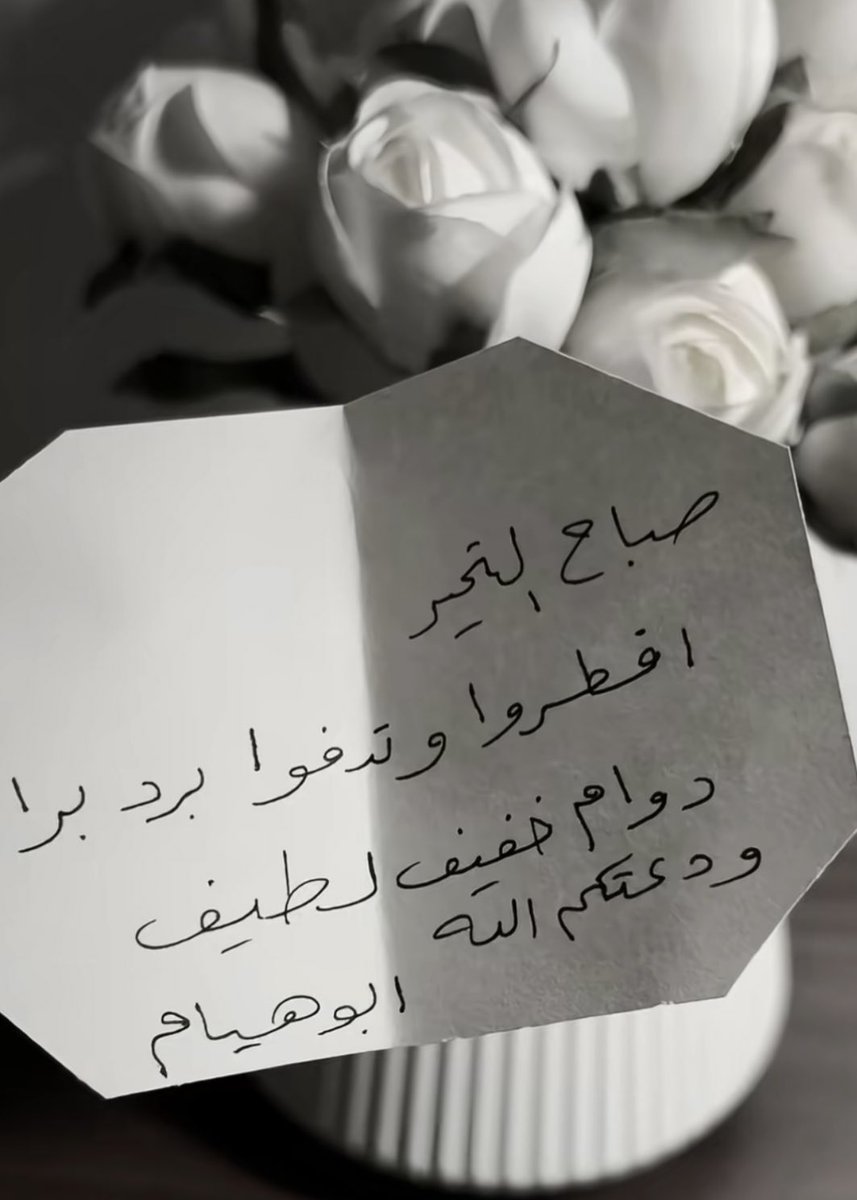 صباح الخير
افطروا وتدفوا برد برا
دوام خفيف لطيف
ودعتكم الله
ابوهيام